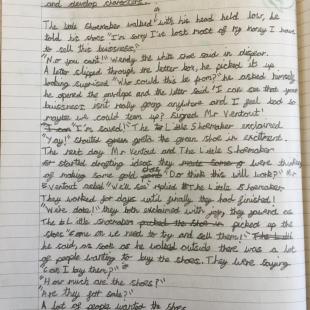 and develop characters.
The little Shoemaker walked with his head held low, he
told his shoe "I'm sorry I've lost most of my money I have
to sell this buissness"
"No you can't!" Wendy the white shoe said in dispear.
A letter slipped through the letter box, he picked it up
looking suprised "Who could this be from?" he asked himself
he opend the envelope and the letter said "I can see that your
buissness isn't really going anywhere and I feel bad so
maybe we could team up? signed Mr Ventout!
"I'm saved!" The Little Shoemaker exclaimed
"Yay!" shouted greta the green shoe in excitment.
The next day Mr Ventout and The Little Shoemaker
started drafting ideas they were thinking
of making some gold shoes "Do think this will work?" Mr
Ventout asked "We'll see" replied the Little Shoemaker
They worked for days until finally they had finished!
"We're done!" they both exclaimed with joy, they
The little shoemaker picked up the
shoe "come on we need to try and sell them!"
he said, as soon as he walked outside there was a lot
of people wanting to buy the shoes. They were saying
"can I buy them?"
"How much are the shoes?"
"Are they for sale?"
A lot of people wanted the shoes